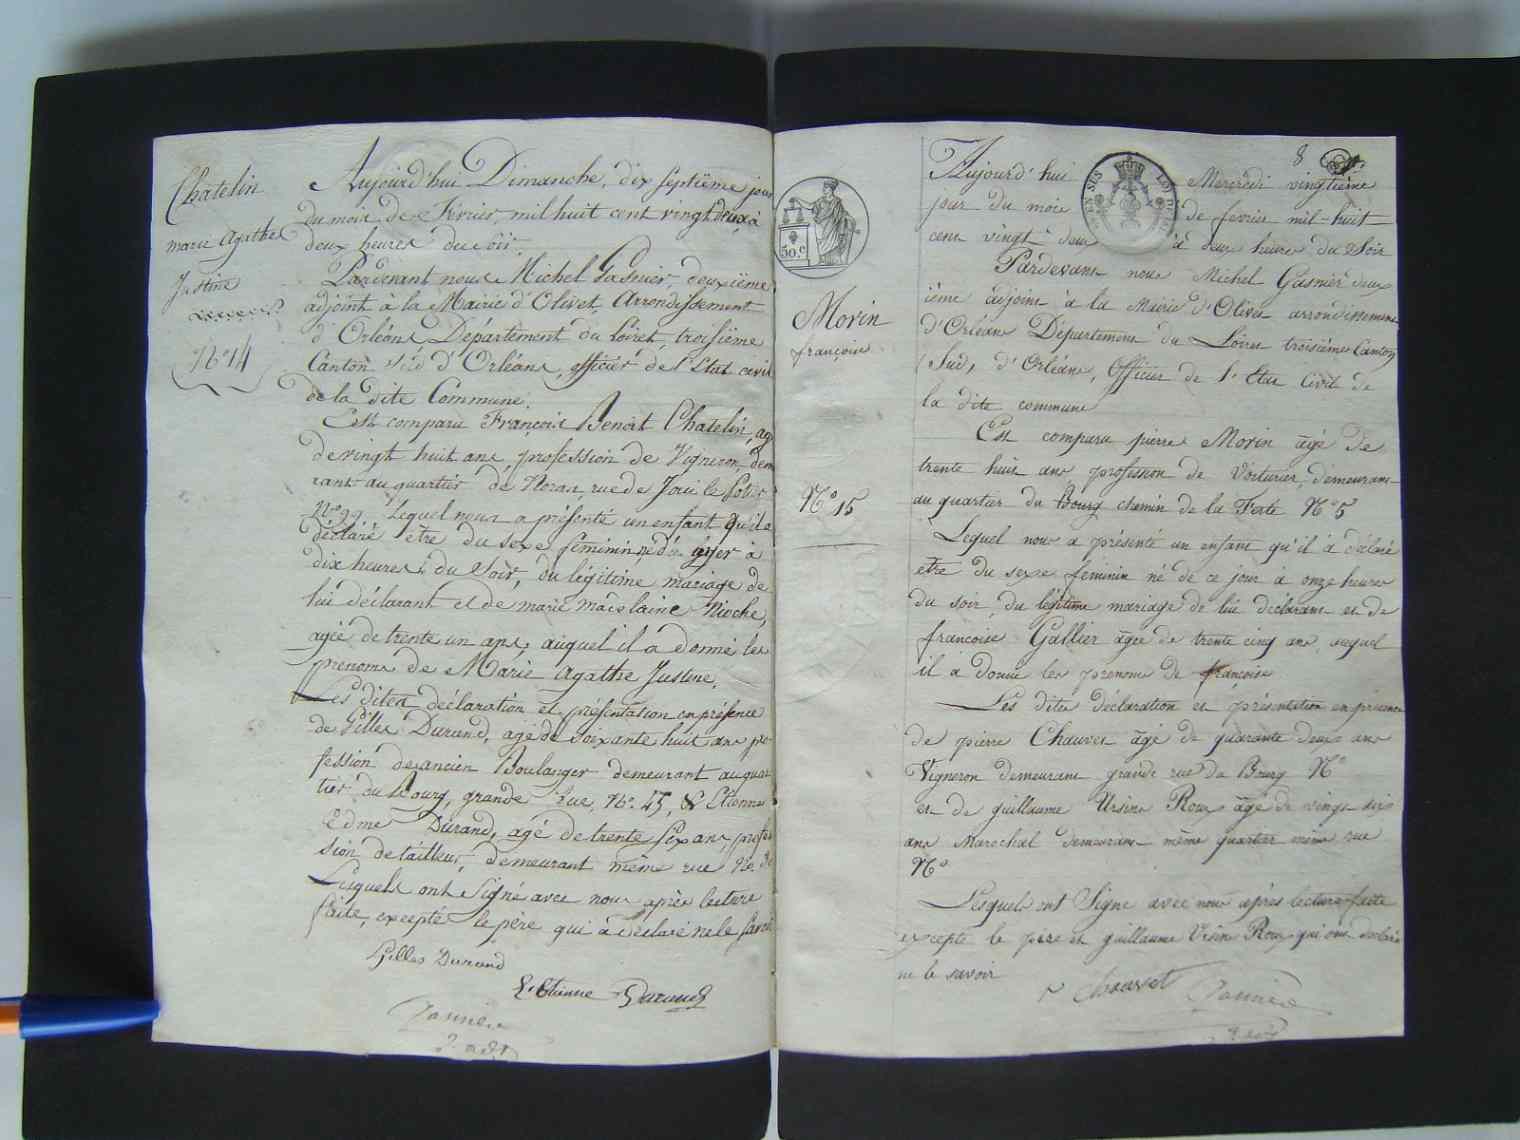 Chatelin
marie agathe
Justine
N°. 14
Aujourd'hui Dimanche, dix septième jour
du mois de Février, mil huit cent vingt deux, à
deux heures du soir
Pardevant nous Michel Gasnier, deuxième
adjoint à la Mairie d'Olivet, Arrondissement
d'Orléans Département du Loiret, troisième
Canton sud d'Orléans, officier de l'Etat civil
de la dite Commune.
Est comparu François Benoit Chatelin, agé
de vingt huit ans, profession de Vigneron, demeu
rant au quartier de Noras, rue de Joui le Potier
N° 99 Lequel nous a présenté un enfant qu'il a
déclaré être du sexe féminin, né du hyer à
dix heures du Soir, du légitime mariage de
lui déclarant et de marie madelaine Nioche,
agée de trente un ans, auquel il a donné les
prénoms de Marie Agathe Justine.
Les dites déclaration et présentation en présence
de Gilles Durand, agé de soixante huit ans pro
fession de ancien Boulanger demeurant au quar
tier du Bourg, grande Rue, N°. 45, & Etienne
Edme Durand, agé de trente six ans profes
sion de tailleur, demeurant même rue N°.
Lesquels ont Signé avec nous après lecture
faite, excepté le père qui a déclaré ne le savoir
Gilles Durand
E. Etienne Durand
Gasnier
2. adjt
8
50.c
Morin
françoise
N° 15
Aujourd'hui Mercredi vingtième
jour du mois de fevrier mil-huit
cent vingt-deux à deux heures du Soir
Pardevant nous Michel Gasnier deux
ième adjoint à la Mairie d'Olivet arrondissement
d'Orléans Département du Loiret troisième Canton
(Sud) d'Orléans, Officier de l'Etat Civil de
la dite commune
Est comparu pierre Morin âgé de
trente huit ans profession de Voiturier, demeurant
au quartier du Bourg chemin de la Ferté N° 5
Lequel nous a présenté un enfant qu'il a déclaré
etre du sexe feminin né de ce jour à onze heures
du soir, du légitime mariage de lui déclarant et de
francoise Gallier âgée de trente cinq ans auquel
il a donné les prenoms de françoise
Les dites déclaration et présentation en présence
de pierre Chauvet âgé de quarante deux ans
Vigneron demeurant grande rue du Bourg N°
et de guillaume Ursin Roux âgé de vingt six
ans Marechal demeurant même quartier même rue
N°
Lesquels ont Signe avec nous après lecture faite
excepte le père et guillaume Ursin Roux qui ont declaré
ne le savoir
P chauvet Gasnier
2. adjt